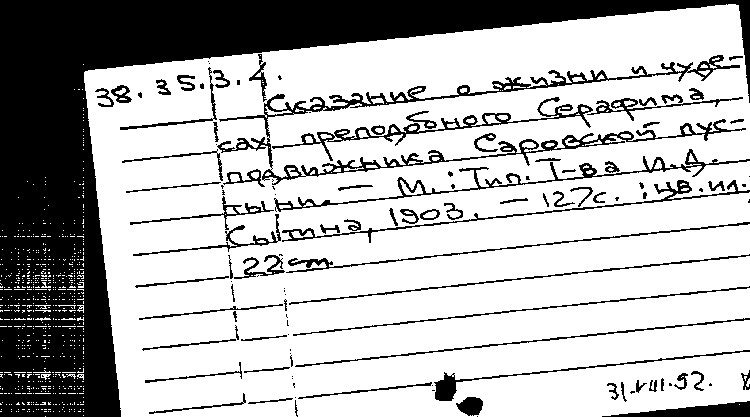 38.35.3.4.
Сказание о жизни и чуде-
сах преподобного Серафима,
подвижника Саровской пус-
тыни. — М.: Тип. Т-ва И.Д.
Сытина, 1903. — 127с. : цв.ил.;
22 см.
31.VIII.92.